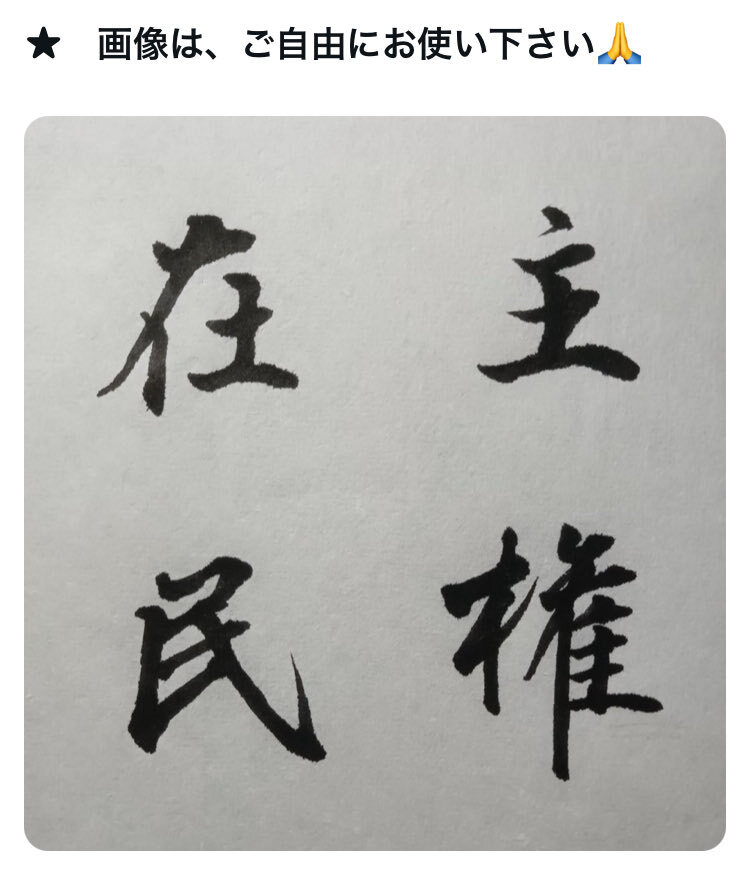 ★ 画像は、ご自由にお使い下さい🙏
主権
在民